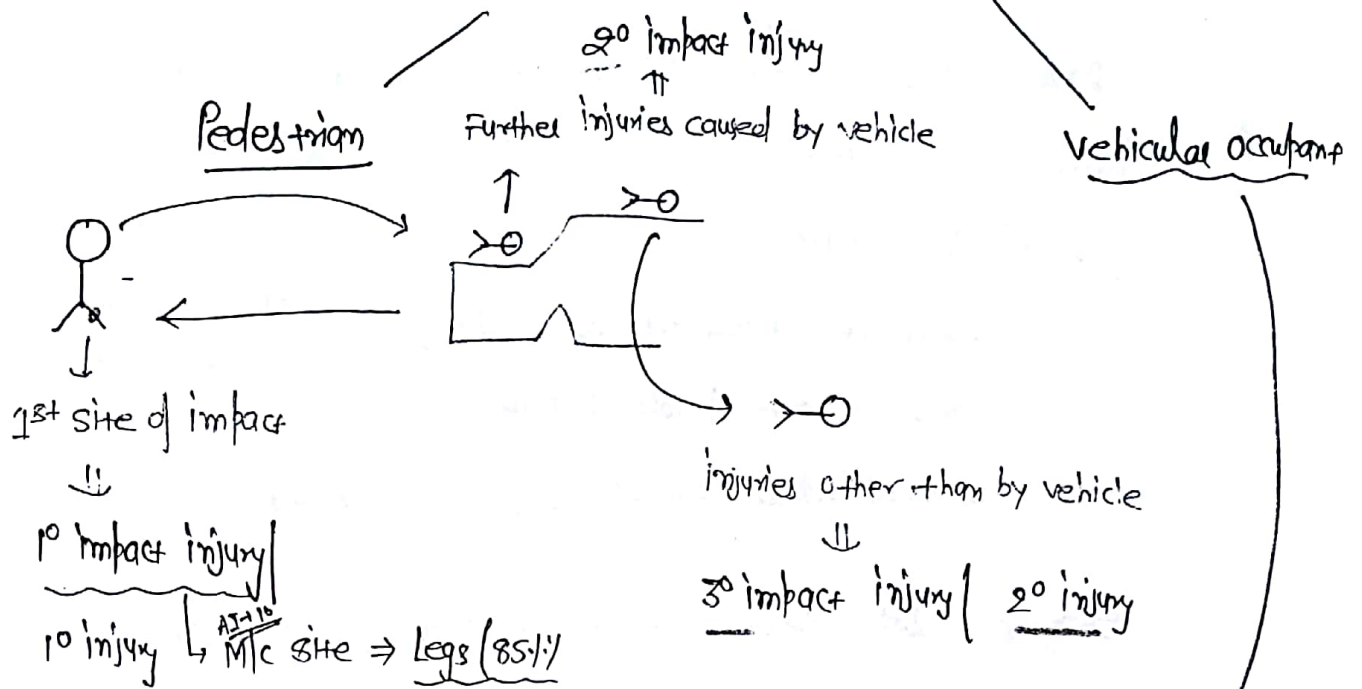 2° impact injury
⇑
Pedestrian
Further injuries caused by vehicle
Vehicular occupant
↑
↓
1st site of impact
⇓
1° impact injury
1° injury
↳ M/C site ⇒ Legs (85%)
injuries other than by vehicle
⇓
3° impact injury | 2° injury